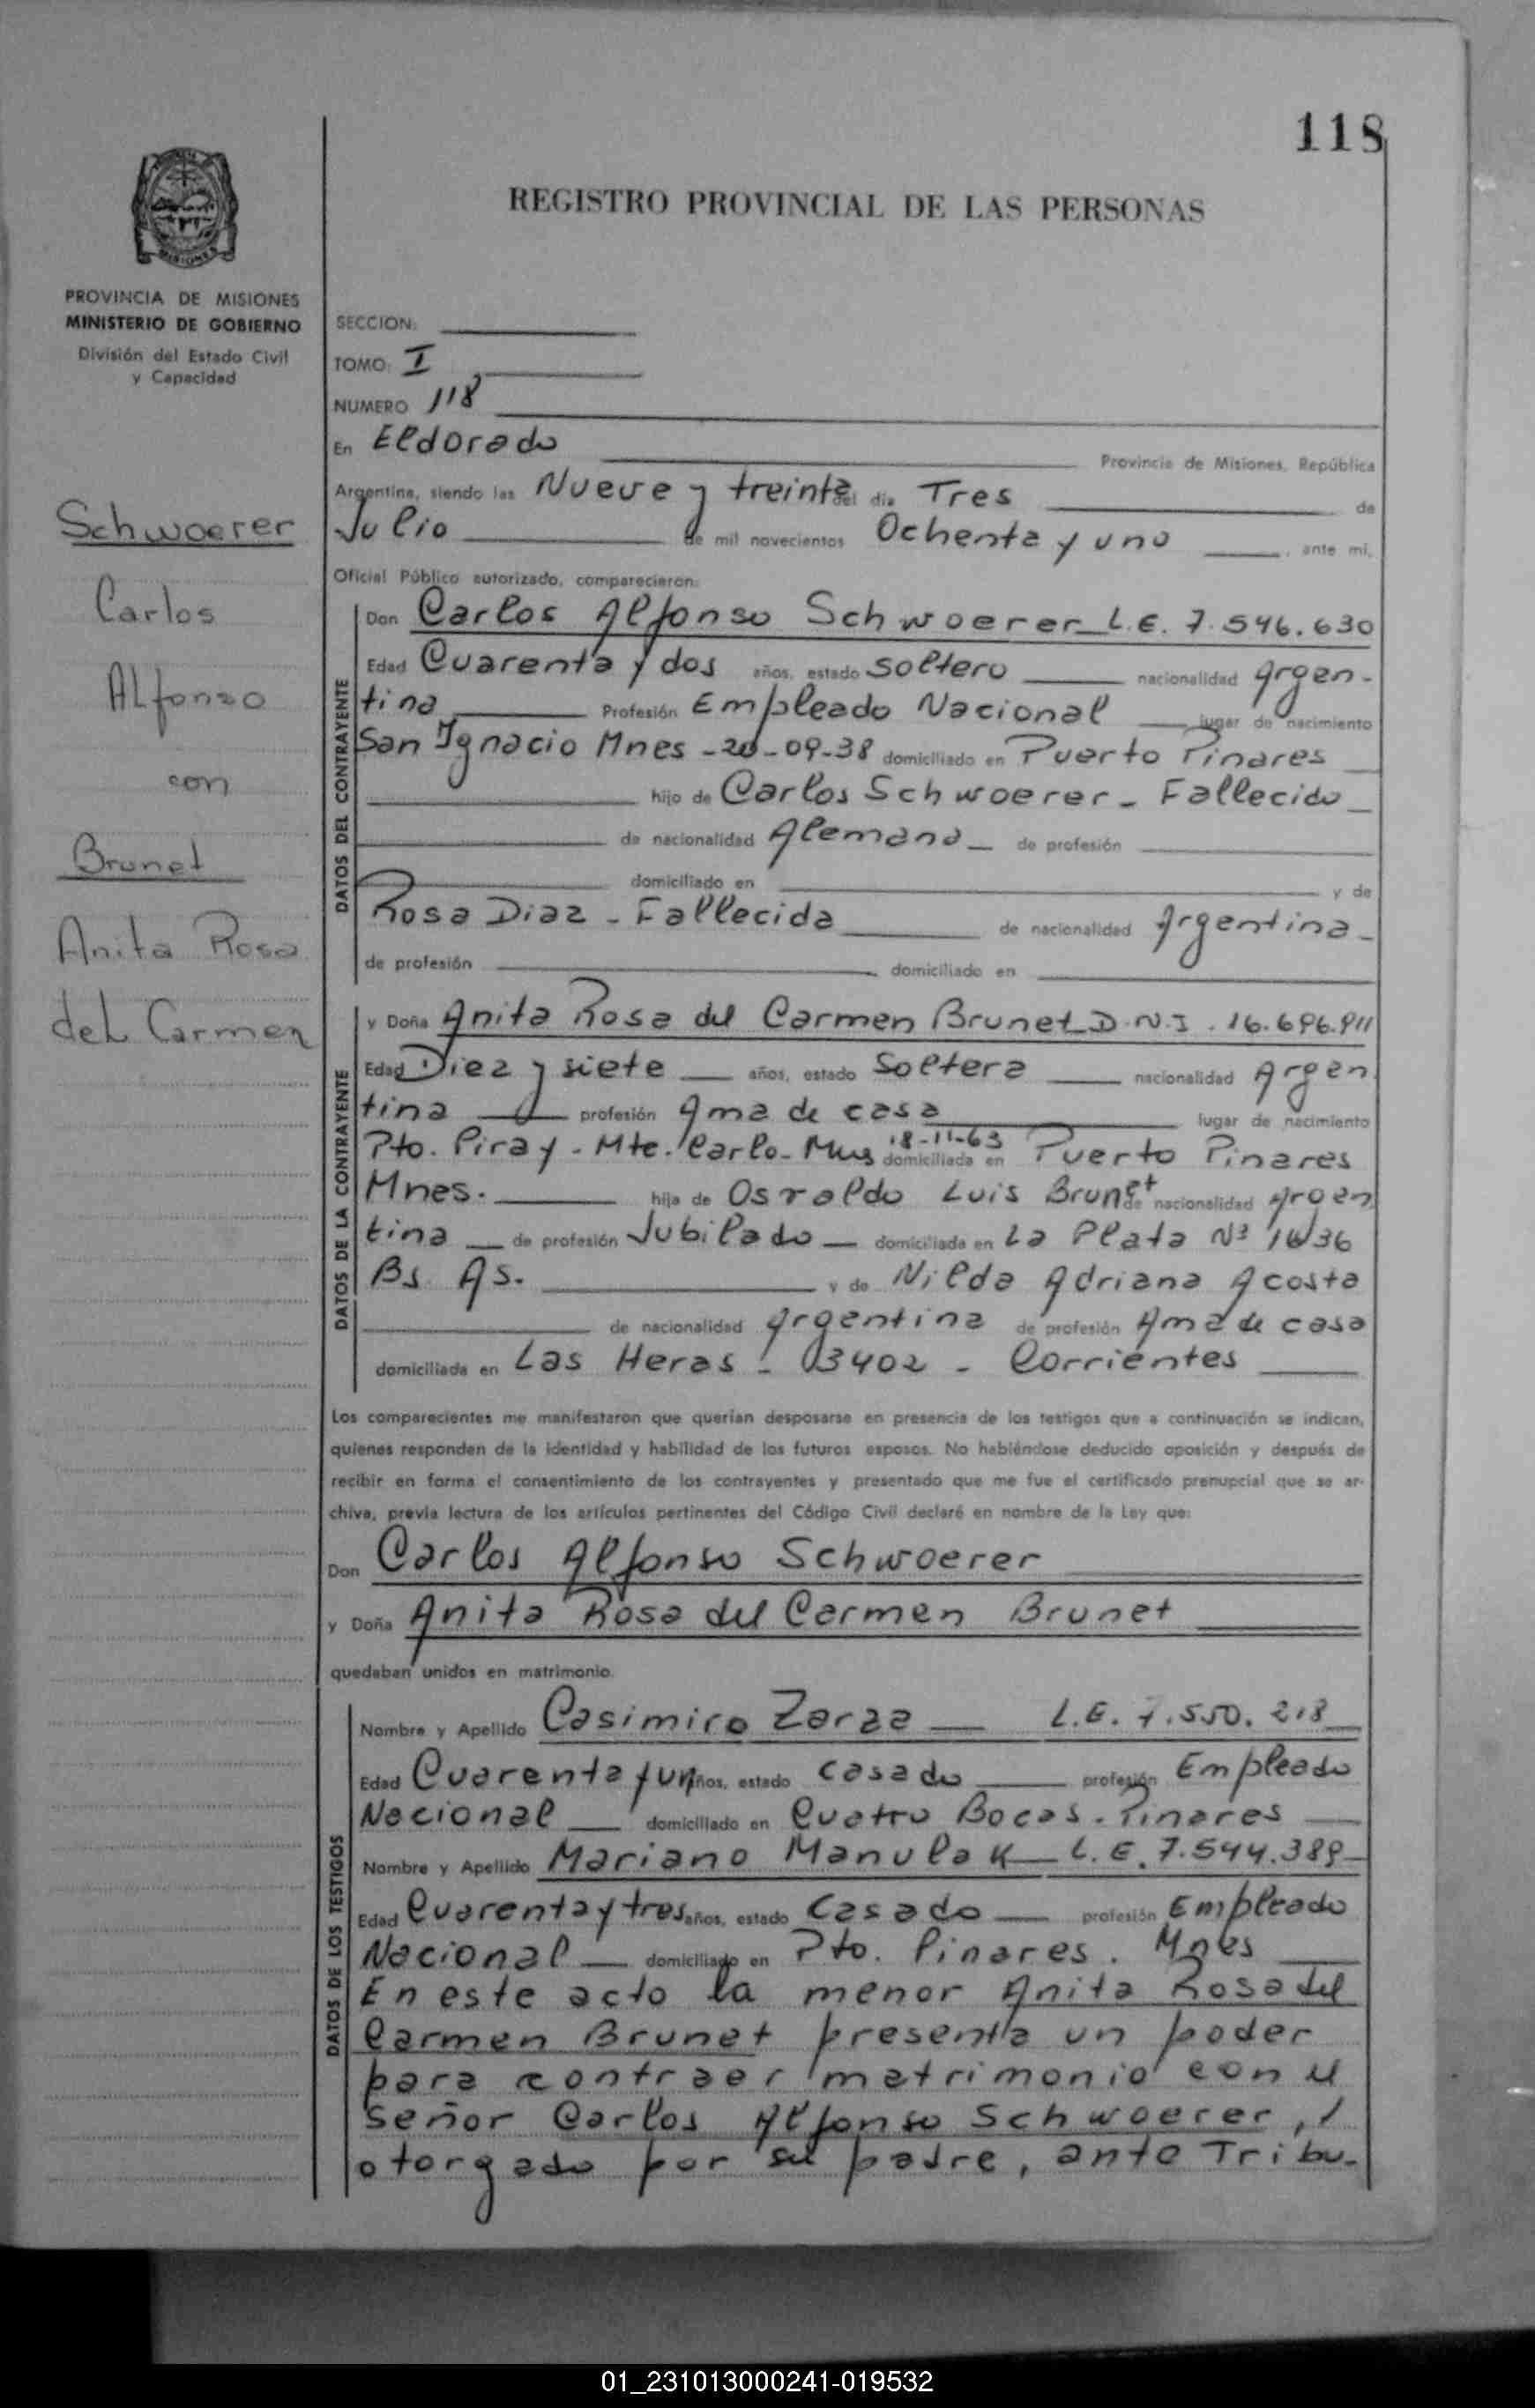 118
REGISTRO PROVINCIAL DE LAS PERSONAS
MISIONES
PROVINCIA DE MISIONES
MINISTERIO DE GOBIERNO
División del Estado Civil
y Capacidad
Schwoerer
Carlos
ALfonso
con
Brunet
Anita Rosa
deL Carmen
SECCION:
TOMO: I
NUMERO 118
En Eldorado Provincia de Misiones, República
Argentina, siendo las Nueve y treinta del día Tres de
Julio de mil novecientos Ochenta y uno, ante mí,
Oficial Público autorizado, comparecieron:
DATOS DEL CONTRAYENTE
Don Carlos Alfonso Schwoerer L.E. 7.546.630
Edad Cuarenta y dos años, estado Soltero nacionalidad Argen-
tina Profesión Empleado Nacional lugar de nacimiento
San Ignacio Mnes - 20-09-38 domiciliado en Puerto Pinares
hijo de Carlos Schwoerer - Fallecido
de nacionalidad Alemana de profesión
domiciliado en y de
Rosa Diaz - Fallecida de nacionalidad Argentina
de profesión domiciliado en
DATOS DE LA CONTRAYENTE
y Doña Anita Rosa del Carmen Brunet D.N.I. 16.696.911
Edad Diez y siete años, estado Soltera nacionalidad Argen
tina profesión Ama de casa lugar de nacimiento
Pto. Piray - Mte. Carlo - 18-11-63 domiciliada en Puerto Pinares
Mnes. hija de Osvaldo Luis Brunet de nacionalidad Argen
tina de profesión Jubilado domiciliada en La Plata Nº
Bs As. y de Nilda Adriana Acosta
de nacionalidad Argentina de profesión Ama de casa
domiciliada en Las Heras - 3402 - Corrientes
Los comparecientes me manifestaron que querían desposarse en presencia de los testigos que a continuación se indican,
quienes responden de la identidad y habilidad de los futuros esposos. No habiéndose deducido oposición y después de
recibir en forma el consentimiento de los contrayentes y presentado que me fue el certificado prenupcial que se ar-
chiva, previa lectura de los artículos pertinentes del Código Civil declaré en nombre de la Ley que:
Don Carlos Alfonso Schwoerer
y Doña Anita Rosa del Carmen Brunet
quedaban unidos en matrimonio.
DATOS DE LOS TESTIGOS
Nombre y Apellido Casimiro Zarza L.E. 7.550.218
Edad Cuarenta y un años, estado Casado profesión Empleado
Nacional domiciliado en Cuatro Bocas - Pinares
Nombre y Apellido Mariano Manulak L.E. 7.544.389
Edad Cuarenta y tres años, estado Casado profesión Empleado
Nacional domiciliado en Pto. Pinares. Mnes
En este acto la menor Anita Rosa del
Carmen Brunet presenta un poder
para contraer matrimonio con el
Señor Carlos Alfonso Schwoerer,
otorgado por su padre, ante Tribu-
01_231013000241-019532